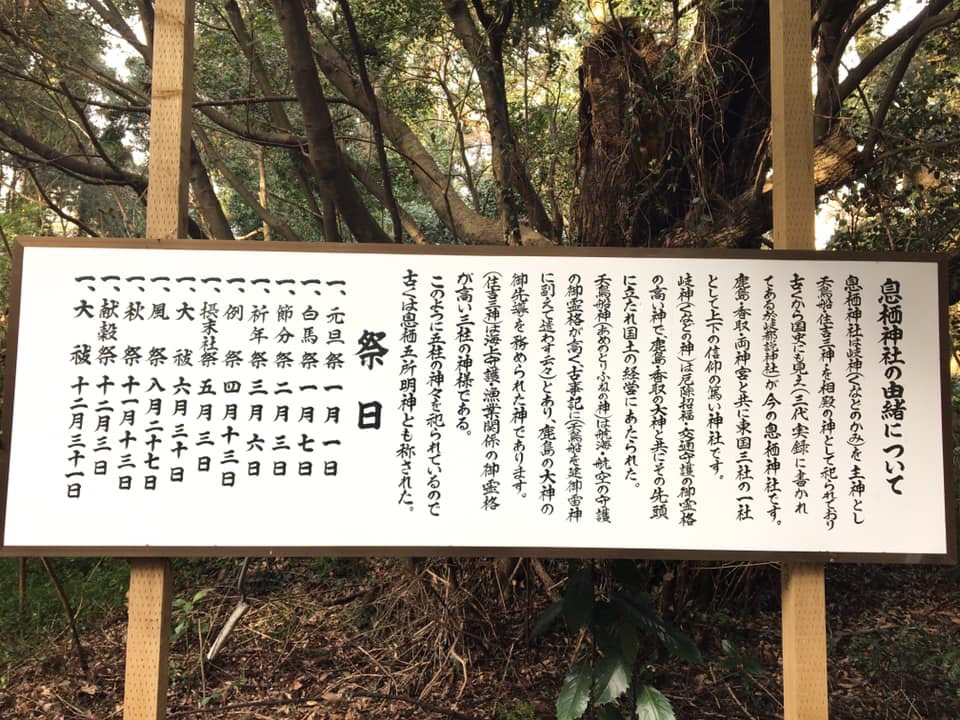 息栖神社の由緒について
息栖神社は岐神(くなどのかみ)を主神とし
天鳥船・住吉三神を相殿の神として祀られており
古くから国史にも見え(三代実録に書かれ
てある於岐都説神社)が今の息栖神社です。
鹿島・香取・両神宮と共に東国三社の一社
として上下の信仰の篤い神社です。
岐神(くなどの神)は厄除招福・交通守護の御霊格
の高い神で鹿島・香取の大神と共にその先頭
に立たれ国土の経営にあたられた。
天鳥船神(あめのとりふねの神)は航海・航空の守護
の御霊格が高く古事記に(天鳥船を建御雷神
に副えて遣わす云々)とあり、鹿島の大神の
御先導を務められた神であります。
(住吉三神)は海上守護・漁業関係の御霊格
が高い三柱の神様である。
このように五柱の神々を祀られているので
古くは息栖五所明神とも称された。
祭日
一、元旦祭 一月一日
一、白馬祭 一月七日
一、節分祭 二月三日
一、祈年祭 三月六日
一、例祭 四月十三日
一、摂末社祭 五月三日
一、大祓 六月三十日
一、風祭 八月二十七日
一、秋祭 十一月十三日
一、献穀祭 十二月三日
一、大祓 十二月三十一日